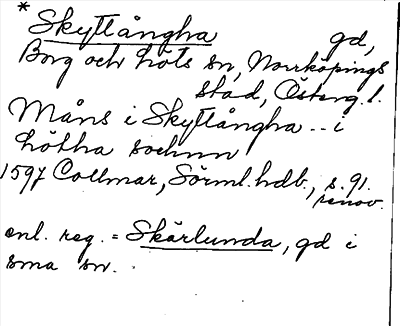 * Skytlångha gd,
Borg och Löts sn, Norrköpings
stad, Österg. l.
Måns i Skytlångha .. i
Lötha sochnn
1597 Collmar, Sörml. hdb., s. 91.
renov.
enl. reg. = Skärlunda, gd i
sma sn.